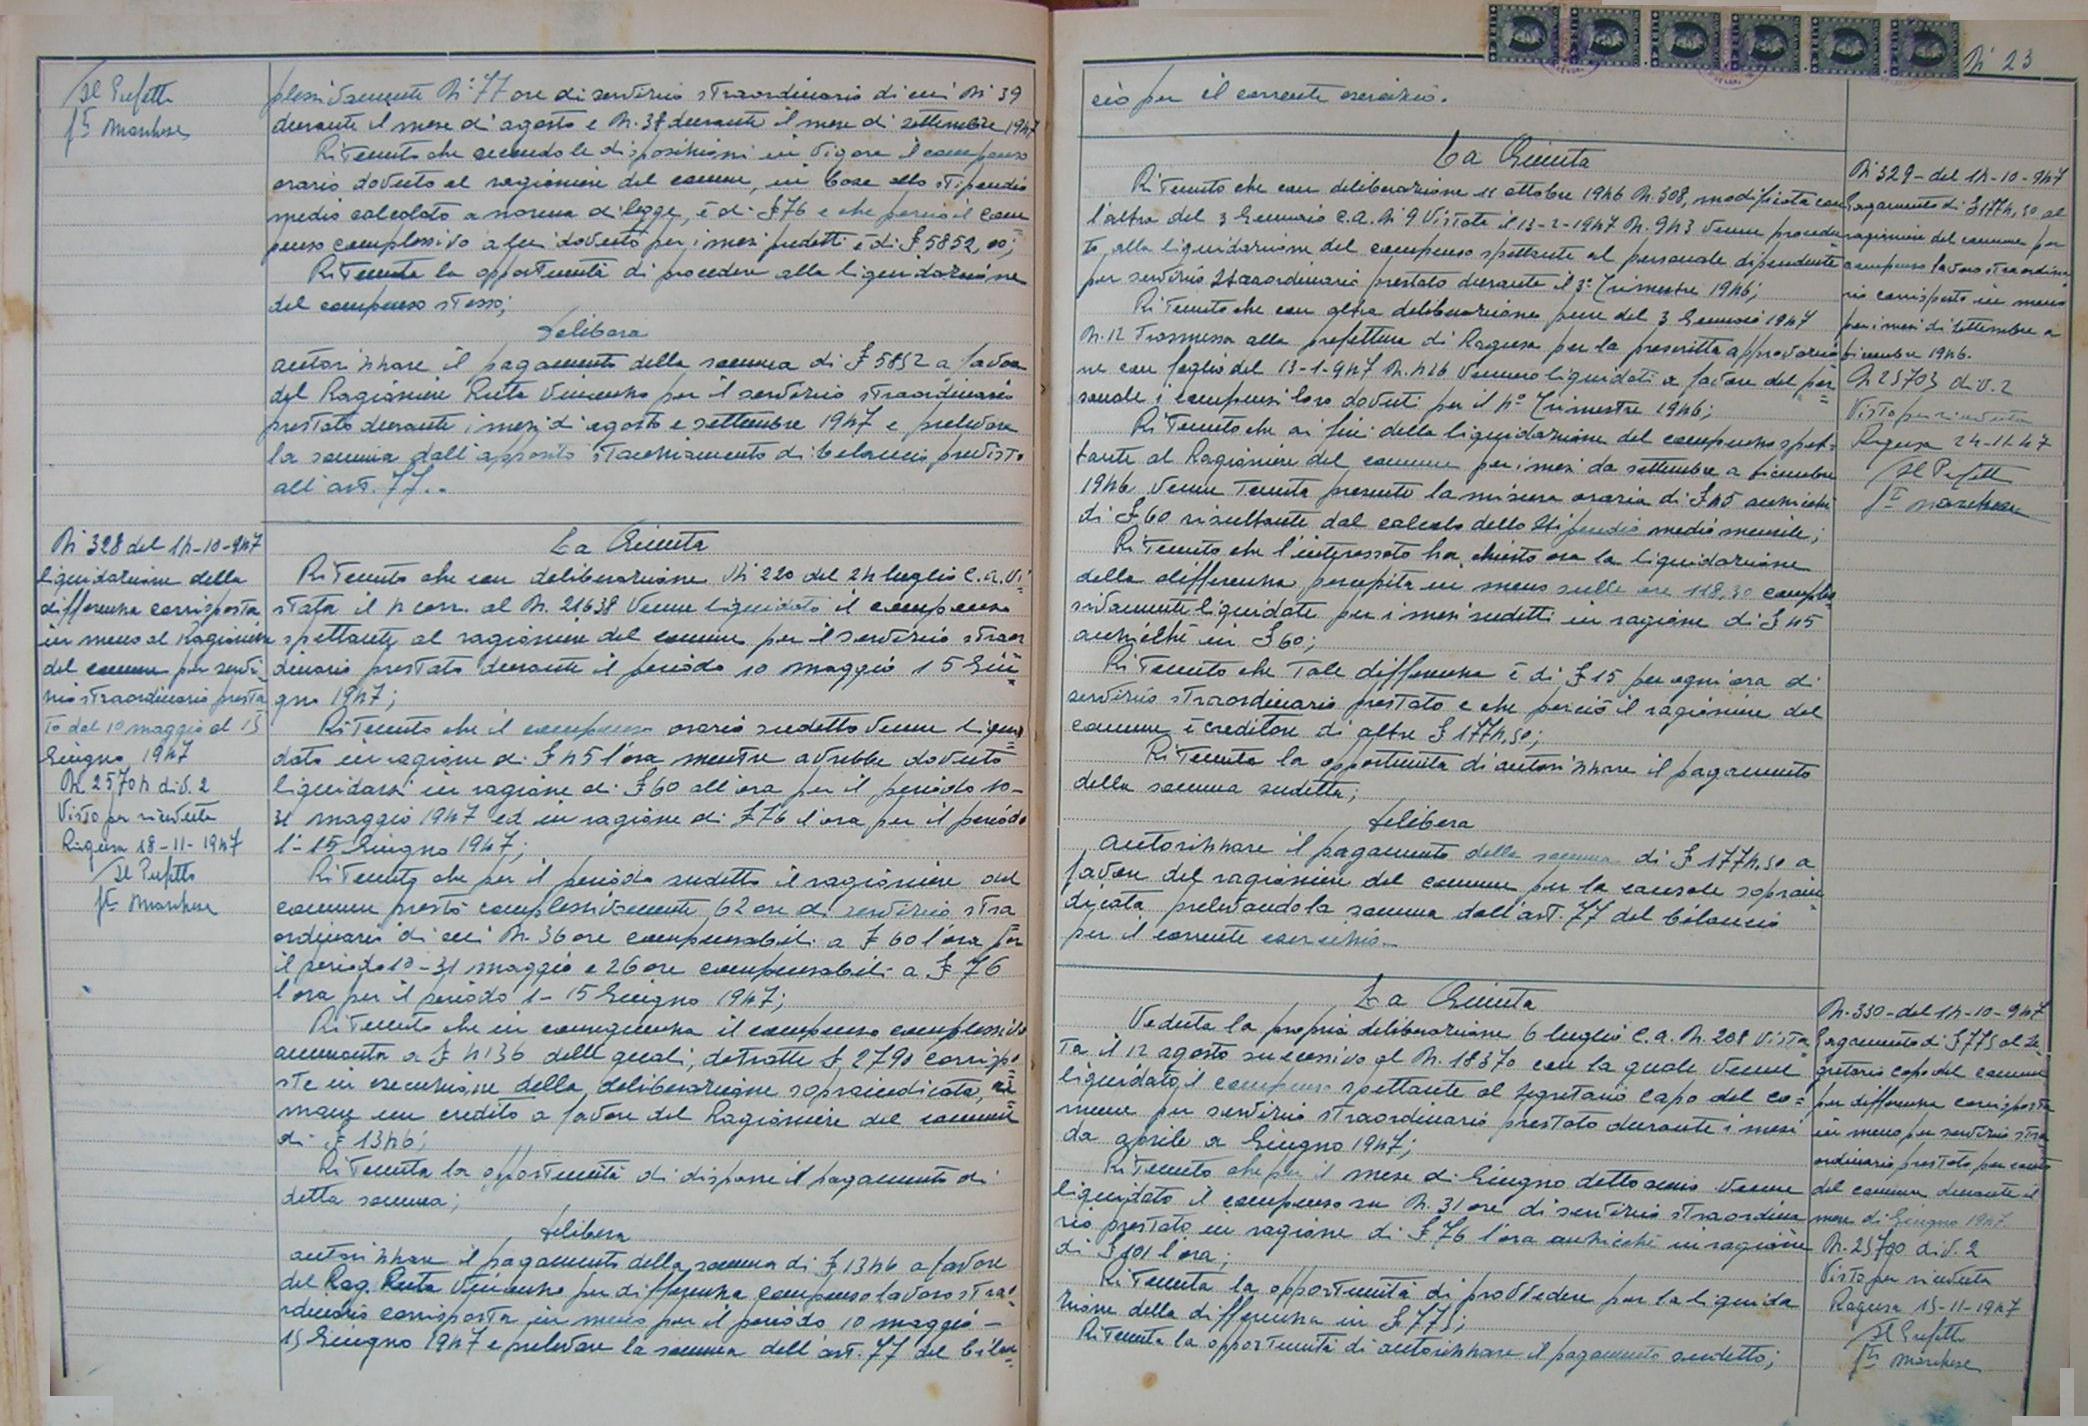 Il Prefetto
fto Marchese
plessivamente N° 77 ore di servizio straordinario di cui N° 39
durante il mese di agosto e N. 38 durante il mese di settembre 1947
Ritenuto che secondo le disposizioni in vigore il compenso
orario dovuto al ragioniere del comune, in base allo stipendio
medio calcolato a norma di legge, è di £ 76 e che perciò il com
penso complessivo a lui dovuto per i mesi predetti è di £ 5852,00;
Ritenuta la opportunità di procedere alla liquidazione
del compenso stesso;
delibera
autorizzare il pagamento della somma di £ 5852 a favore
del Ragioniere Ruta Vincenzo per il servizio straordinario
prestato durante i mesi di agosto e settembre 1947 e prelevare
la somma dall'apposito stanziamento di bilancio previsto
all'art. 77..
N° 328 del 14-10-947
liquidazione della
differenza corrisposta
in meno al Ragioniere
del comune per servi
zio straordinario presta
to dal 10 maggio al 15
Giugno 1947
N. 25704 div. 2
Visto per ricevuta
Ragusa 18-11-1947
Il Prefetto
fto Marchese
La Giunta
Ritenuto che con deliberazione N° 220 del 24 luglio c.a. vi=
stata il 4 corr. al N. 21638 venne liquidato il compenso
spettante al ragioniere del comune per il servizio straor
dinario prestato durante il periodo 10 maggio 15 Giu=
gno 1947;
Ritenuto che il compenso orario sudetto venne liqui=
dato in ragione di £ 45 l'ora mentre avrebbe dovuto
liquidarsi in ragione di £ 60 all'ora per il periodo 10-
31 maggio 1947 ed in ragione di £ 76 l'ora per il periodo
1-15 Giugno 1947;
Ritenuto che per il periodo sudetto il ragioniere del
comune prestò complessivamente 62 ore di servizio stra
ordinario di cui N. 36 ore compensabili a £ 60 l'ora per
il periodo 10-31 maggio e 26 ore compensabili a £ 76
l'ora per il periodo 1-15 Giugno 1947;
Ritenuto che in conseguenza il compenso complessivo
ammonta a £ 4136 delle quali, detratte £ 2790 corrispo=
ste in esecuzione della deliberazione sopraindicata, ri=
mane un credito a favore del Ragioniere del comune
di £ 1346;
Ritenuta la opportunità di disporre il pagamento di
detta somma;
delibera
autorizzare il pagamento della somma di £ 1346 a favore
del Rag. Ruta Vincenzo per differenza compenso lavoro stra=
ordinario corrisposta in meno per il periodo 10 maggio -
15 Giugno 1947 e prelevare la somma dell'art. 77 del bilan=
N° 23
cio per il corrente esercizio.
La Giunta
Ritenuto che con deliberazione 11 ottobre 1946 N. 308, modificata con
l'altra del 3 Gennaio c.a. N° 9 vistate il 13-2-1947 N. 943 venne procedu
to alla liquidazione del compenso spettante al personale dipendente
per servizio straordinario prestato durante il 3° Trimestre 1946;
Ritenuto che con altra deliberazione pure del 3 Gennaio 1947
N. 12 trasmessa alla prefettura di Ragusa per la prescritta approvazio
ne con foglio del 13-1-947 N. 426 vennero liquidati a favore del per=
sonale i compensi loro dovuti per il 4° Trimestre 1946;
Ritenuto che ai fini della liquidazione del compenso spet=
tante al Ragioniere del comune per i mesi da settembre a dicembre
1946 venne tenuta presente la misura oraria di £ 45 anzichè
di £ 60 risultante dal calcolo dello stipendio medio mensile;
Ritenuto che l'interessato ha chiesto ora la liquidazione
della differenza percepita in meno sulle ore 118,30 comples=
sivamente liquidate per i mesi sudetti in ragione di £ 45
anzichè in £ 60;
Ritenuto che tale differenza è di £ 15 per ogni ora di
servizio straordinario prestato e che perciò il ragioniere del
comune è creditore di altre £ 1774,50;
Ritenuta la opportunità di autorizzare il pagamento
della somma sudetta;
delibera
autorizzare il pagamento della somma di £ 1774,50 a
favore del ragioniere del comune per la causale soprain=
dicata prelevando la somma dall'art. 77 del bilancio
per il corrente esercizio.
N° 329 - del 14-10-947
Pagamento di £ 1774,50 al
ragioniere del comune per
compenso lavoro straordina
rio corrisposto in meno
per i mesi di settembre a
dicembre 1946.
N 25703 div. 2
Visto per ricevuta
Ragusa 24-11-47
Il Prefetto
fto Marchese
La Giunta
Veduta la propria deliberazione 6 luglio c.a. N. 208 vista=
ta il 12 agosto successivo al N. 18370 con la quale venne
liquidato il compenso spettante al segretario capo del co=
mune per servizio straordinario prestato durante i mesi
da aprile a Giugno 1947;
Ritenuto che per il mese di Giugno detto anno venne
liquidato il compenso su N. 31 ore di servizio straordina
rio prestato in ragione di £ 76 l'ora anzichè in ragione
di £ 101 l'ora;
Ritenuta la opportunità di provvedere per la liquida
zione della differenza in £ 775;
Ritenuta la opportunità di autorizzare il pagamento sudetto;
N. 330 - del 14-10-947
Pagamento di £ 775 al Se=
gretario capo del comune
per differenza corrisposta
in meno per servizio stra
ordinario prestato per conto
del comune durante il
mese di Giugno 1947
N. 25700 div. 2
Visto per ricevuta
Ragusa 15-11-1947
Il Prefetto
fto Marchese